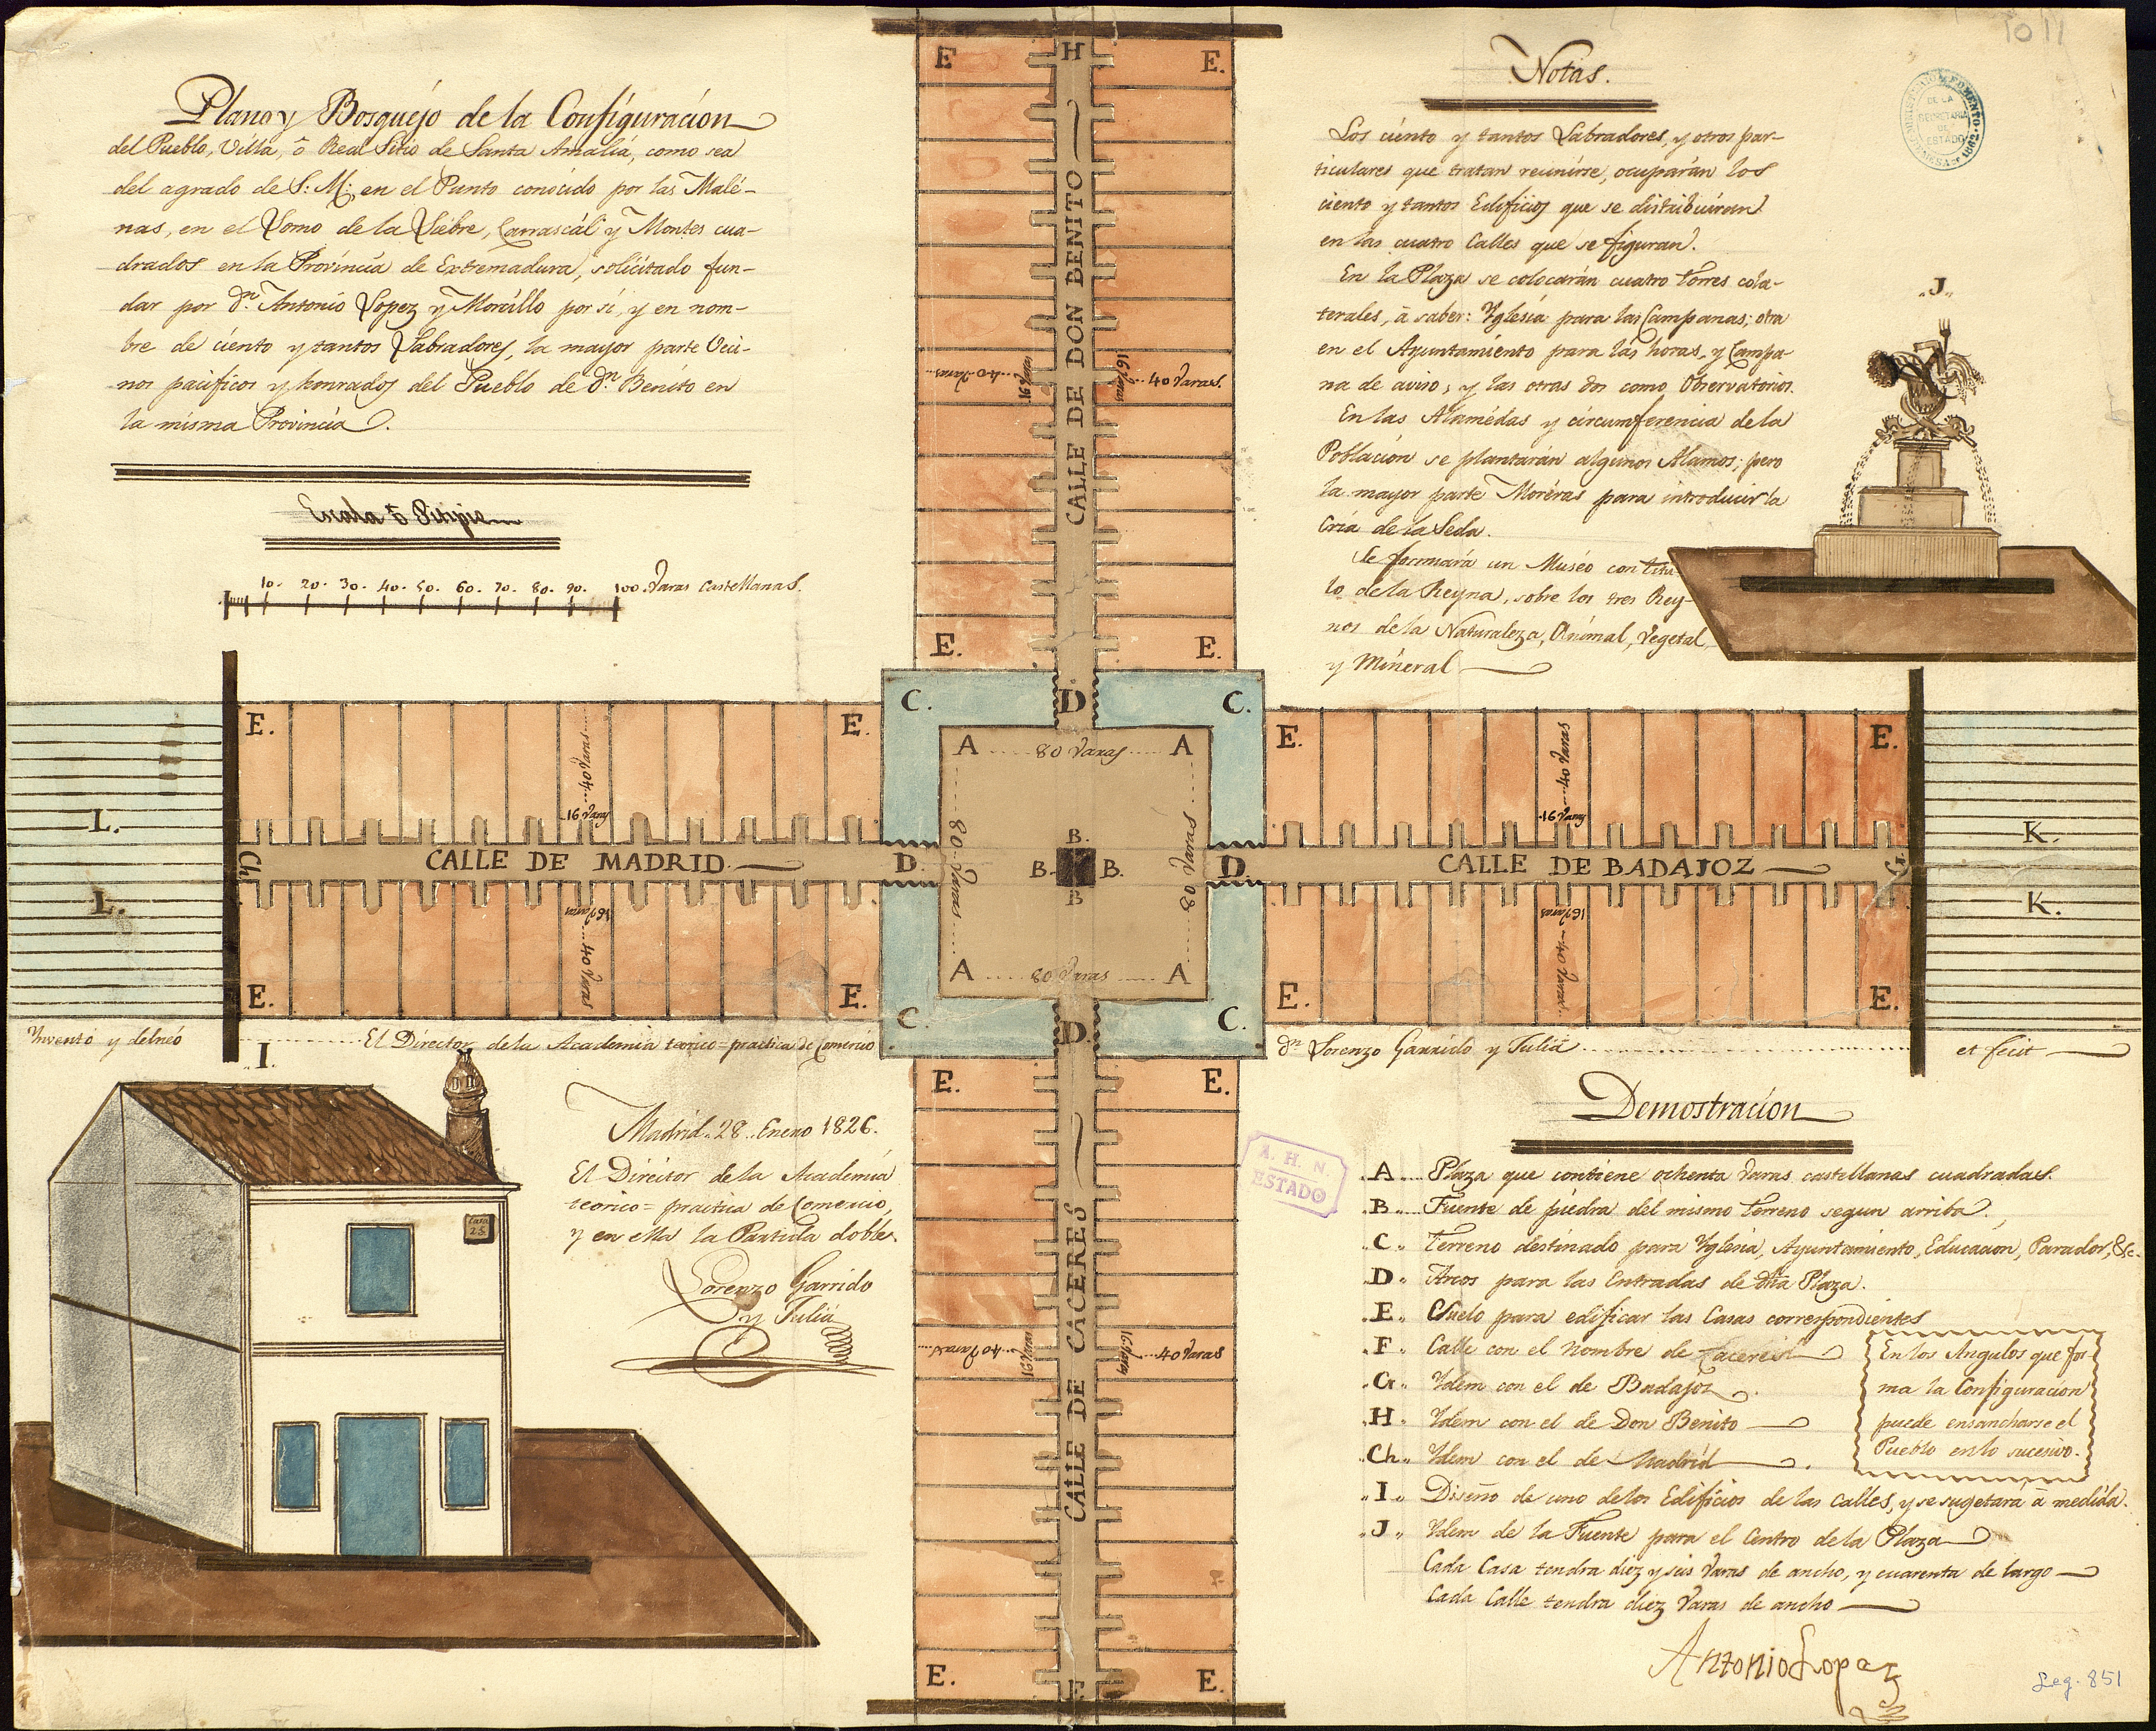 Plano y Bosquéjo de la Configuración
del Pueblo, Villa, ô Real Sitio de Santa Amalia, como sea
del agrado de S: M: en el Punto conocido por las Malé-
nas, en el Lomo de la Liebre, Carrascál y Montes cua-
drados en la Provincia de Extremadura, solicitado fun-
dar por Dn. Antonio Lopez y Morcillo por sí, y en nom-
bre de ciento y tantos Labradores, la mayor parte Veci-
nos pacificos y honrados del Pueblo de Dn. Benito en
la misma Provincia.
Escala ó Pitipie
10. 20. 30. 40. 50. 60. 70. 80. 90. 100. Varas Castellanas.
Notas.
Los ciento y tantos Labradores, y otros par-
ticulares que tratan reunirse, ocuparán los
ciento y tantos Edificios que se distribuirán
en las cuatro Calles que se figuran.
En la Plaza se colocarán cuatro Torres cola-
terales, á saber: Yglesia para las Campanas; otra
en el Ayuntamiento para las horas, y Campa-
na de aviso; y las otras dos como Observatorios.
En las Alamédas y circumferencia de la
Poblacion se plantarán algunos Alamos; pero
la mayor parte Moréras para introducir la
Cria de la Seda.
Se formará un Muséo con Titu-
lo de la Reyna, sobre los tres Rey-
nos de la Naturaleza, Animal, Vegetal,
y Mineral
MINISTERIO DE FOMENTO
DE LA
SECRETARIA
DE
ESTADO
1011
„J„
E H E.
CALLE DE DON BENITO
40 Varas
16 Varas
16 Varas
40 Varas.
E. E.
C. D. C.
A 80 Varas A
80 Varas
80 Varas
B.
B. B.
B
A 80 Varas A
C. D. C.
L.
L.
Ch.
E. E.
40 Varas
16 Varas
CALLE DE MADRID
D.
16 Varas
40 Varas
E. E.
E. E.
40 Varas
16 Varas
D. CALLE DE BADAJOZ G.
16 Varas
40 Varas
E. E.
K.
K.
Ynventó y delneó El Director de la Academia teorico=practica de Comercio Dn. Lorenzo Garrido y Juliá et fecit
I.
Casa
25
Madrid 28 Enero 1826.
El Director de la Academia
teorico=practica de Comercio,
y en ella la Partida doble.
Lorenzo Garrido
y Juliá
E. E.
CALLE DE CACERES
40 Varas
16 Varas
16 Varas
40 Varas
E. F E.
A. H. N.
ESTADO
Demostracion
A Plaza que contiene ochenta Varas castellanas cuadradas.
B Fuente de piedra del mismo terreno segun arriba.
C Terreno destinado para Yglesia, Ayuntamiento, Educacion, Parador, &c.
D Arcos para las Entradas de dha Plaza.
E Suelo para edificar las Casas correspondientes
F Calle con el nombre de Caceres
G Ydem con el de Badajoz
H Ydem con el de Don Benito
Ch Ydem con el de Madrid
En los Angulos que for-
ma la Configuracion
puede ensancharse el
Pueblo en lo sucesivo.
I Diseño de uno de los Edificios de las Calles, y se sugetará á medida.
J Ydem de la Fuente para el Centro de la Plaza
Cada Casa tendra diez y seis Varas de ancho, y cuarenta de largo
Cada Calle tendra diez Varas de ancho
Antonio Lopez
Leg. 851